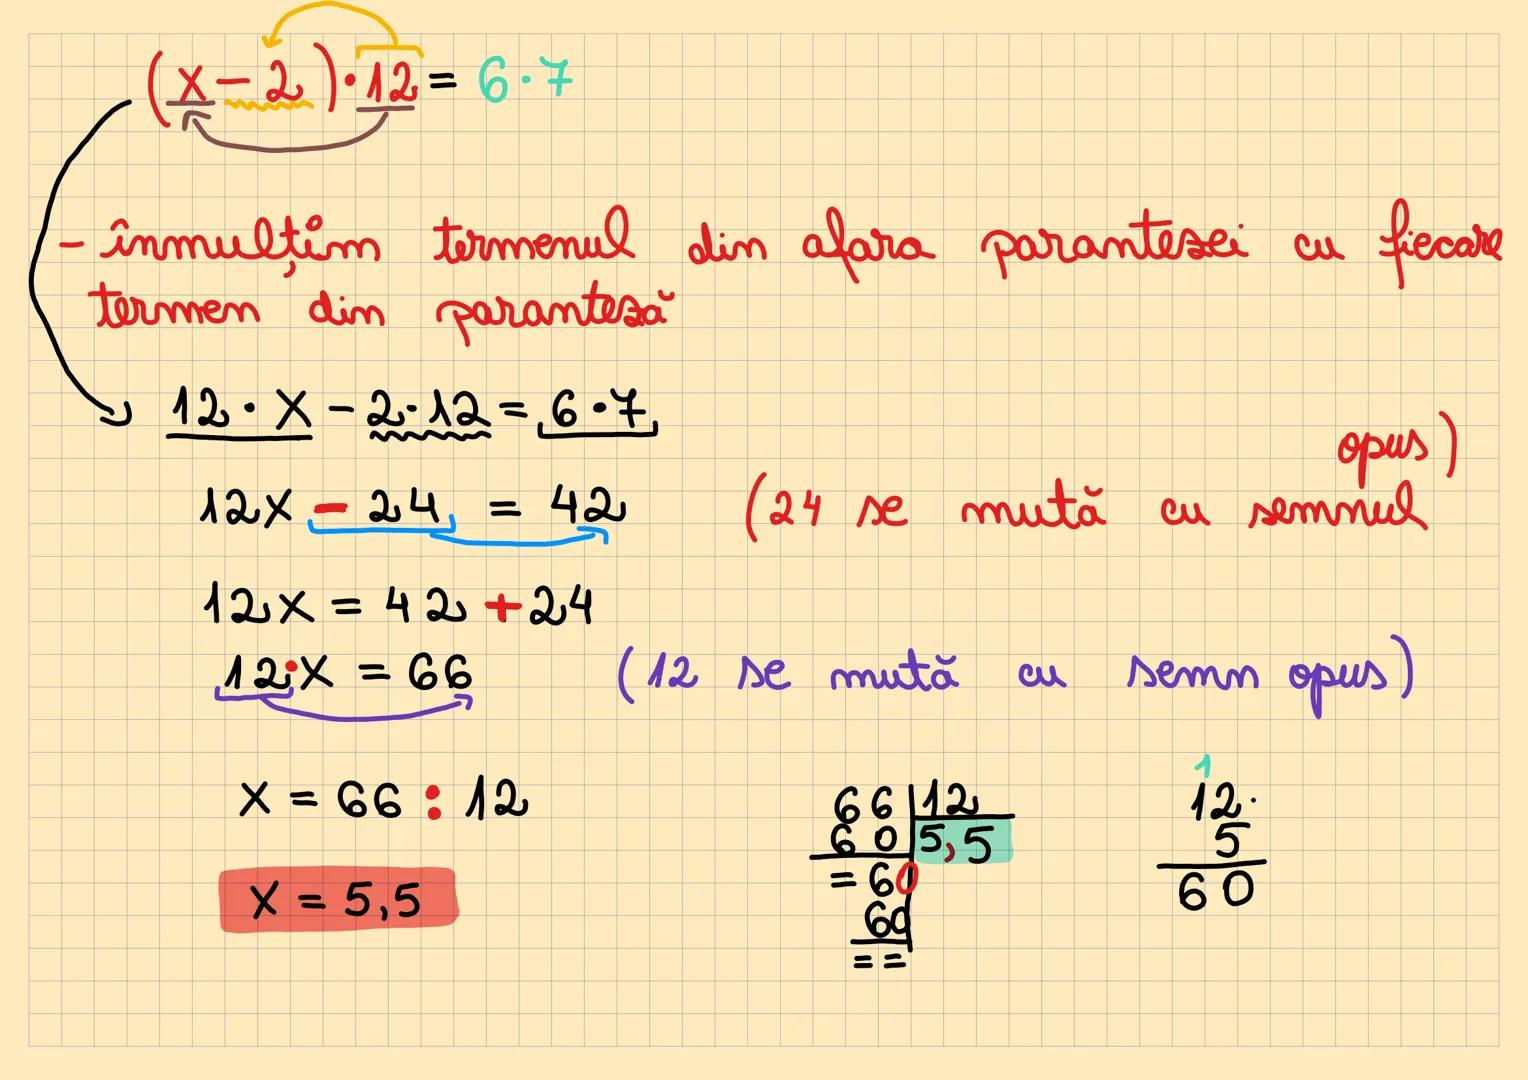 (x - 2) · 12 = 6 · 7
- înmulțim termenul din afara parantezei cu fiecare
termen din paranteză
12 · x - 2 · 12 = 6 · 7
12x - 24 = 42 (24 se mută cu semnul opus)
12x = 42 + 24
12 · x = 66 (12 se mută cu semn opus)
x = 66 : 12
x = 5,5
66 | 12
60 | 5,5
= 60
60
= =
1
12 ·
5
60